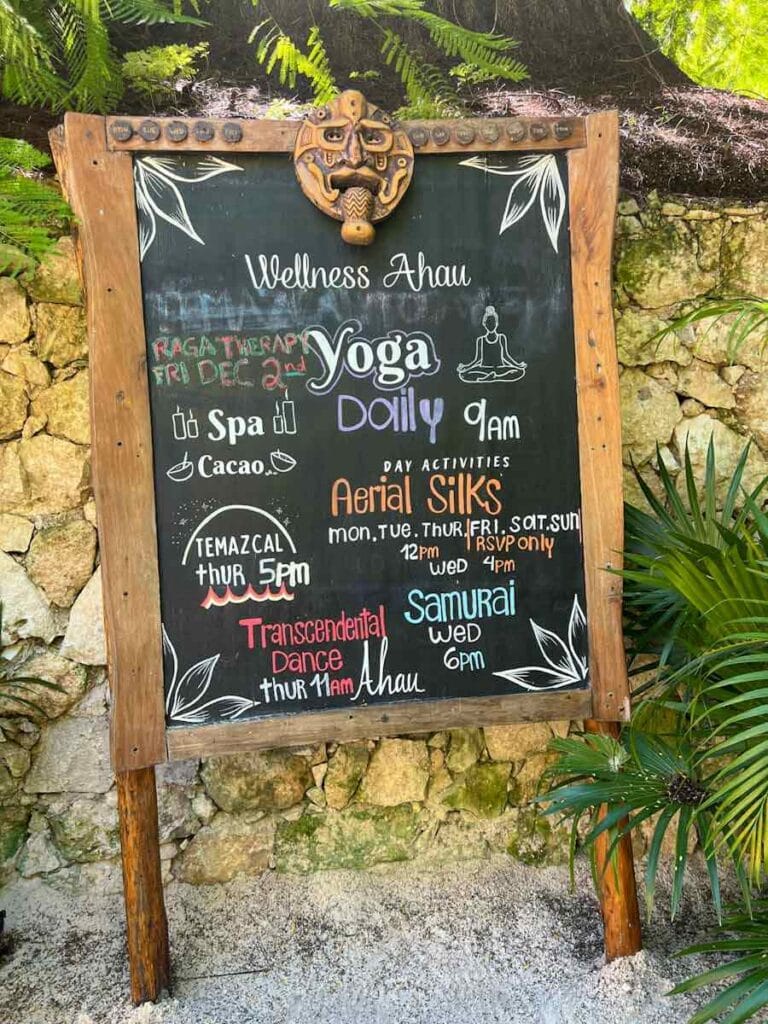 Wellness Ahau
RAGA THERAPY
FRI DEC 2nd
Yoga
Daily 9AM
Spa
Cacao
DAY ACTIVITIES
Aerial Silks
MON, TUE. THUR, FRI. SAT. SUN
12pm RSVP only
WED 4pm
TEMAZCAL
thur 5pm
Samurai
WED
6pm
Transcendental
Dance
thur 11AM Ahau